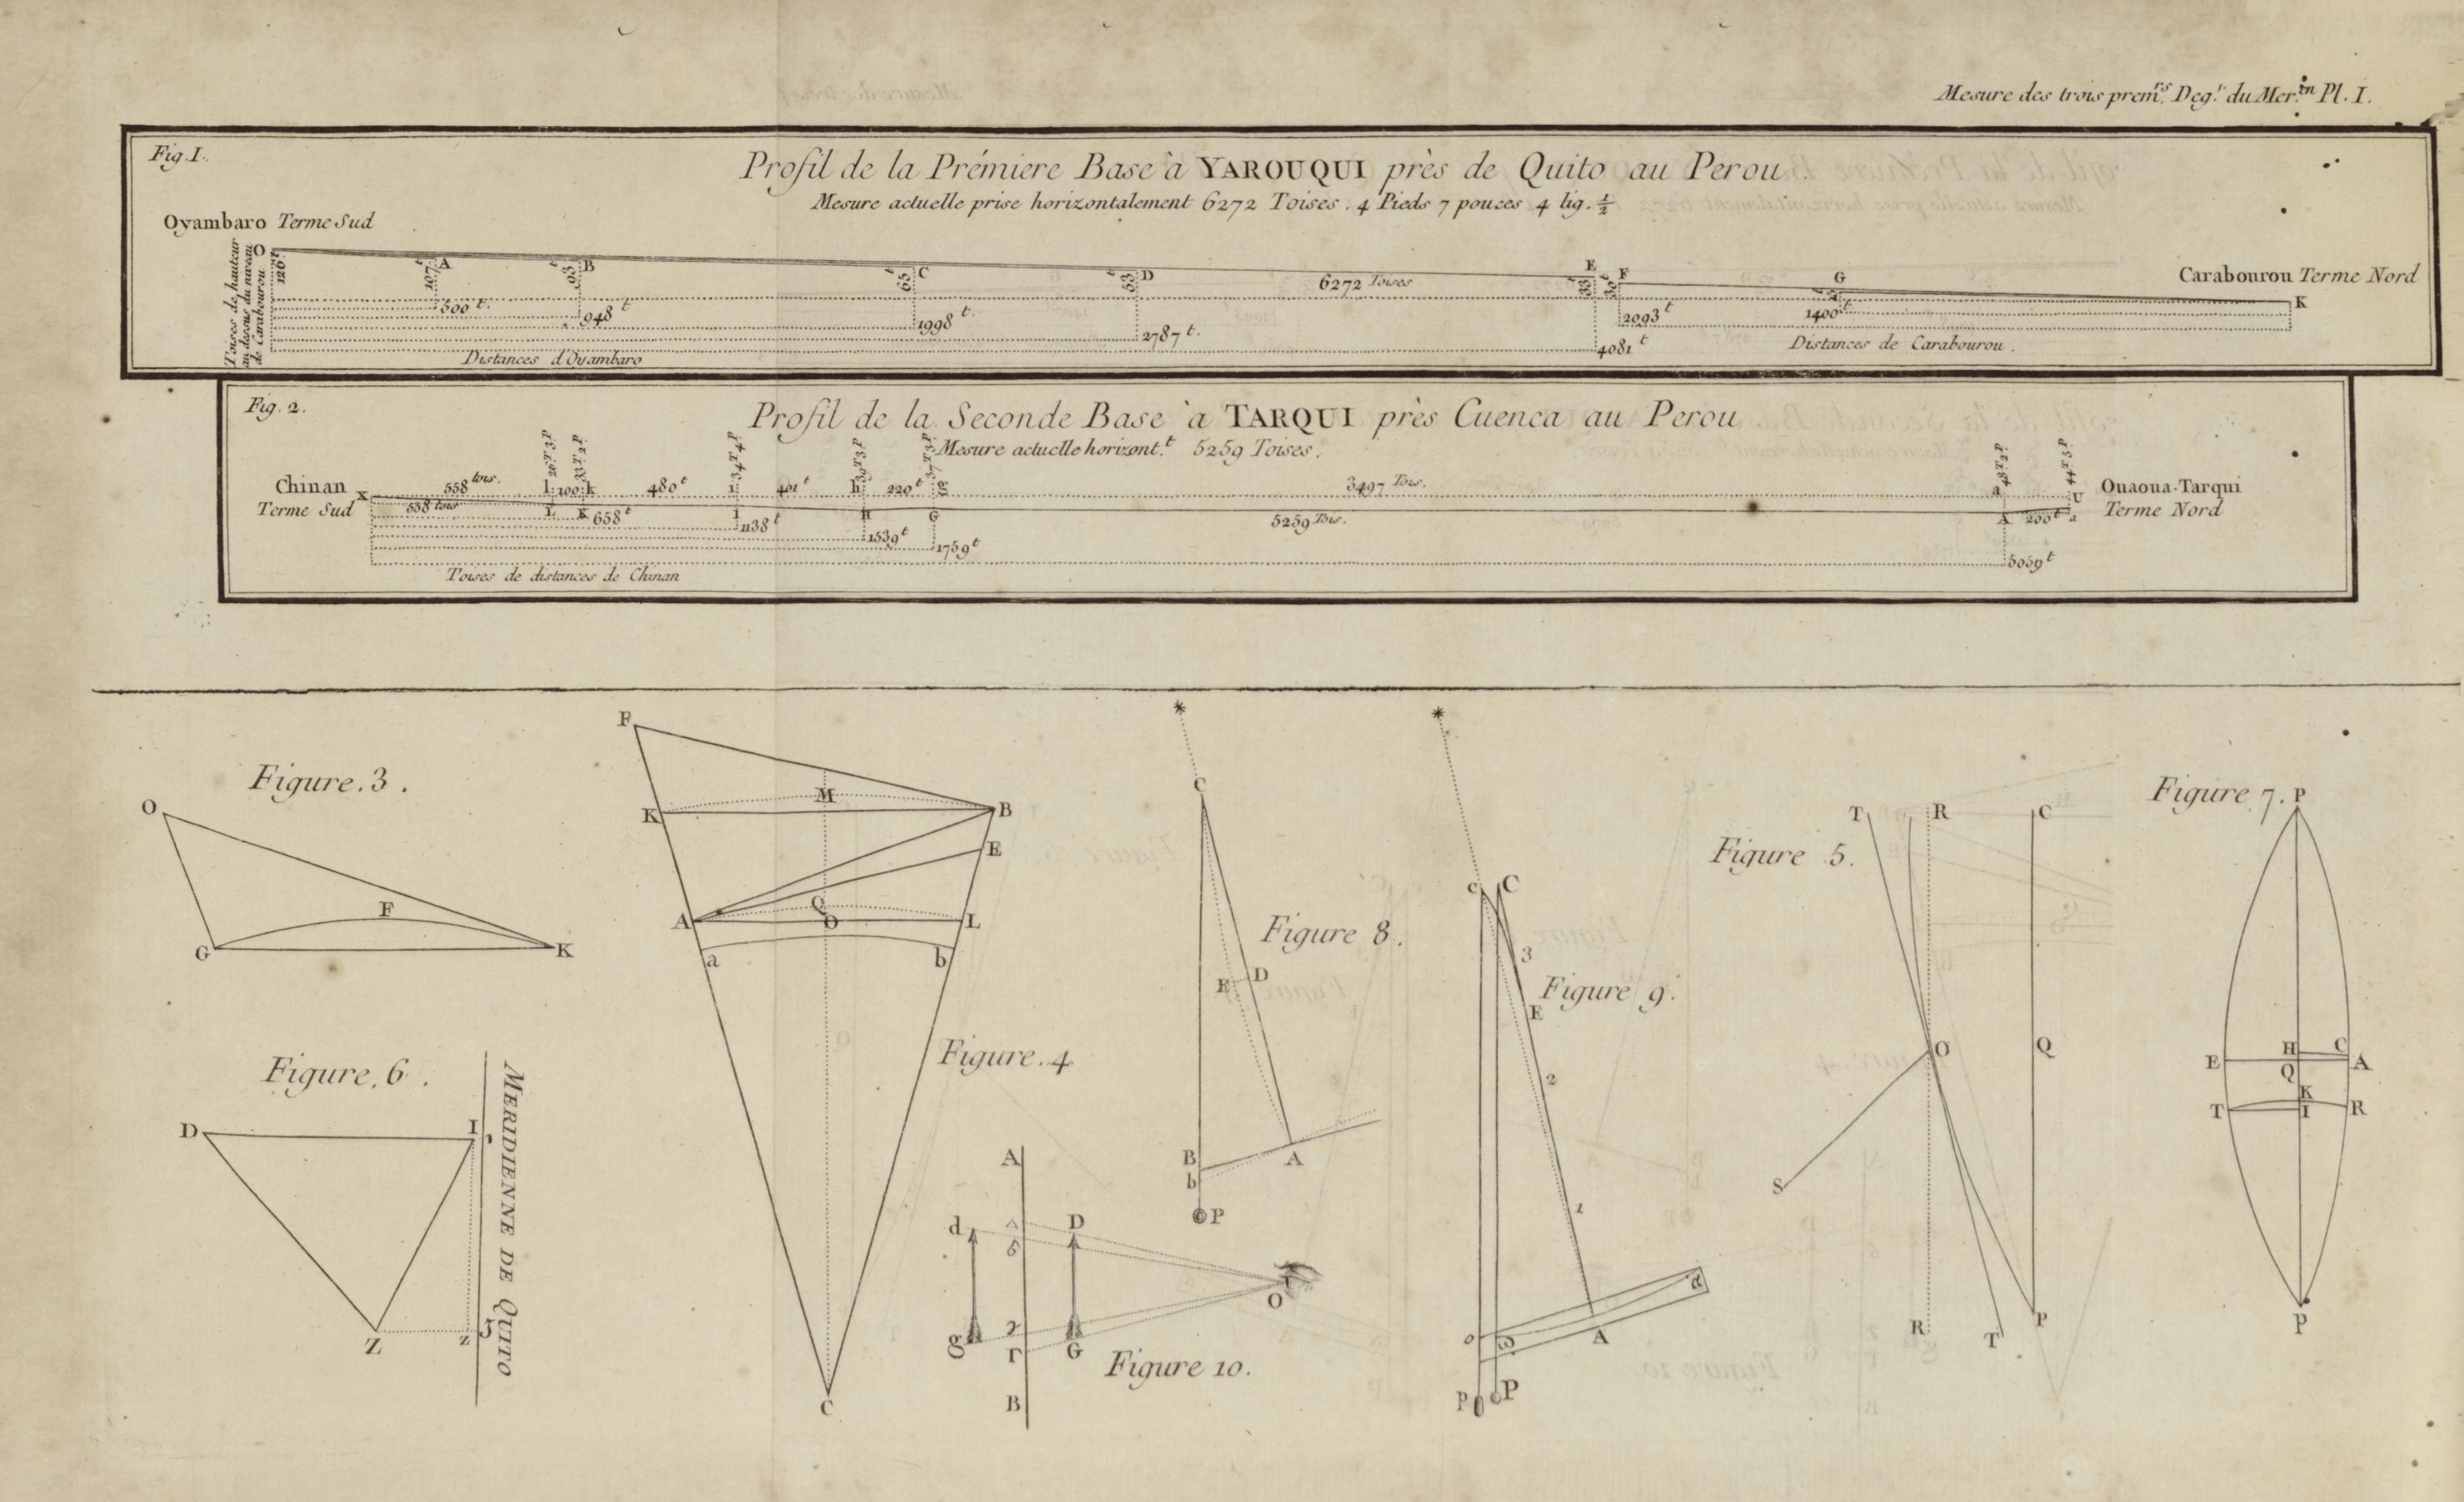 Mesure des trois prem.rs Deg.s du Mer.en Pl. I.
Fig. I.
Profil de la Prémiere Base à YAROUQUI près de Quito au Perou.
Mesure actuelle prise horizontalement 6272 Toises. 4 Pieds 7 pouces 4 lig. ½
Oyambaro Terme Sud
Toises de hauteur
au dessus du niveau
de Carabourou
O 126t A 107 B 93 C 63 D 53 6272 Toises E F G
Carabourou Terme Nord
K
500 t. 948 t 1998 t. 2787 t. 4081 t 2093 t 1400 t
Distances d'Oyambaro
Distances de Carabourou.
Fig. 2.
Profil de la Seconde Base à TARQUI près Cuenca au Perou
Mesure actuelle horizont.t 5259 Toises.
26T 3P 33T 2P 34T 4P 39T 3P 37T 3P 48T 2P 44T 5P
Chinan
Terme Sud
x 558 tois. l 100 k 480 t i 401 t h 220 t g 3497 Tois. a U
558 tois L K 658 t I 1138 t H 1539 t G 1759 t 5259 Tois. A 200 t 5059 t
Ouaoua-Tarqui
Terme Nord
Toises de distances de Chinan
Figure. 3.
O
F
G K
F
M
K B
E
A Q O L
a b
C
Figure. 4
C
Figure 8.
E D
B A
b
P
c C
3
Figure 9.
E
2
1
o ω A a
P P
Figure 5.
T R C
O Q
S
R T P
Figure 7.
P
H C
E Q A
K
T I R
P
Figure. 6.
D I
Z z
MERIDIENNE DE QUITO
A
d Δ D
δ
O
g γ
Γ G
B
Figure 10.